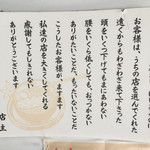 お客様は、うちの店を選んでくれた
遠くからもわざわざ来て下さった
頭をいくつ下げてもまにあわない
腰をいくら低くしても、おっつかない
ありがたいことだ、もったいないことだ
こうしたお客様が、ますます
私達の店を大きくしてくれる
感謝してもしきれない
ありがとうございます
店主